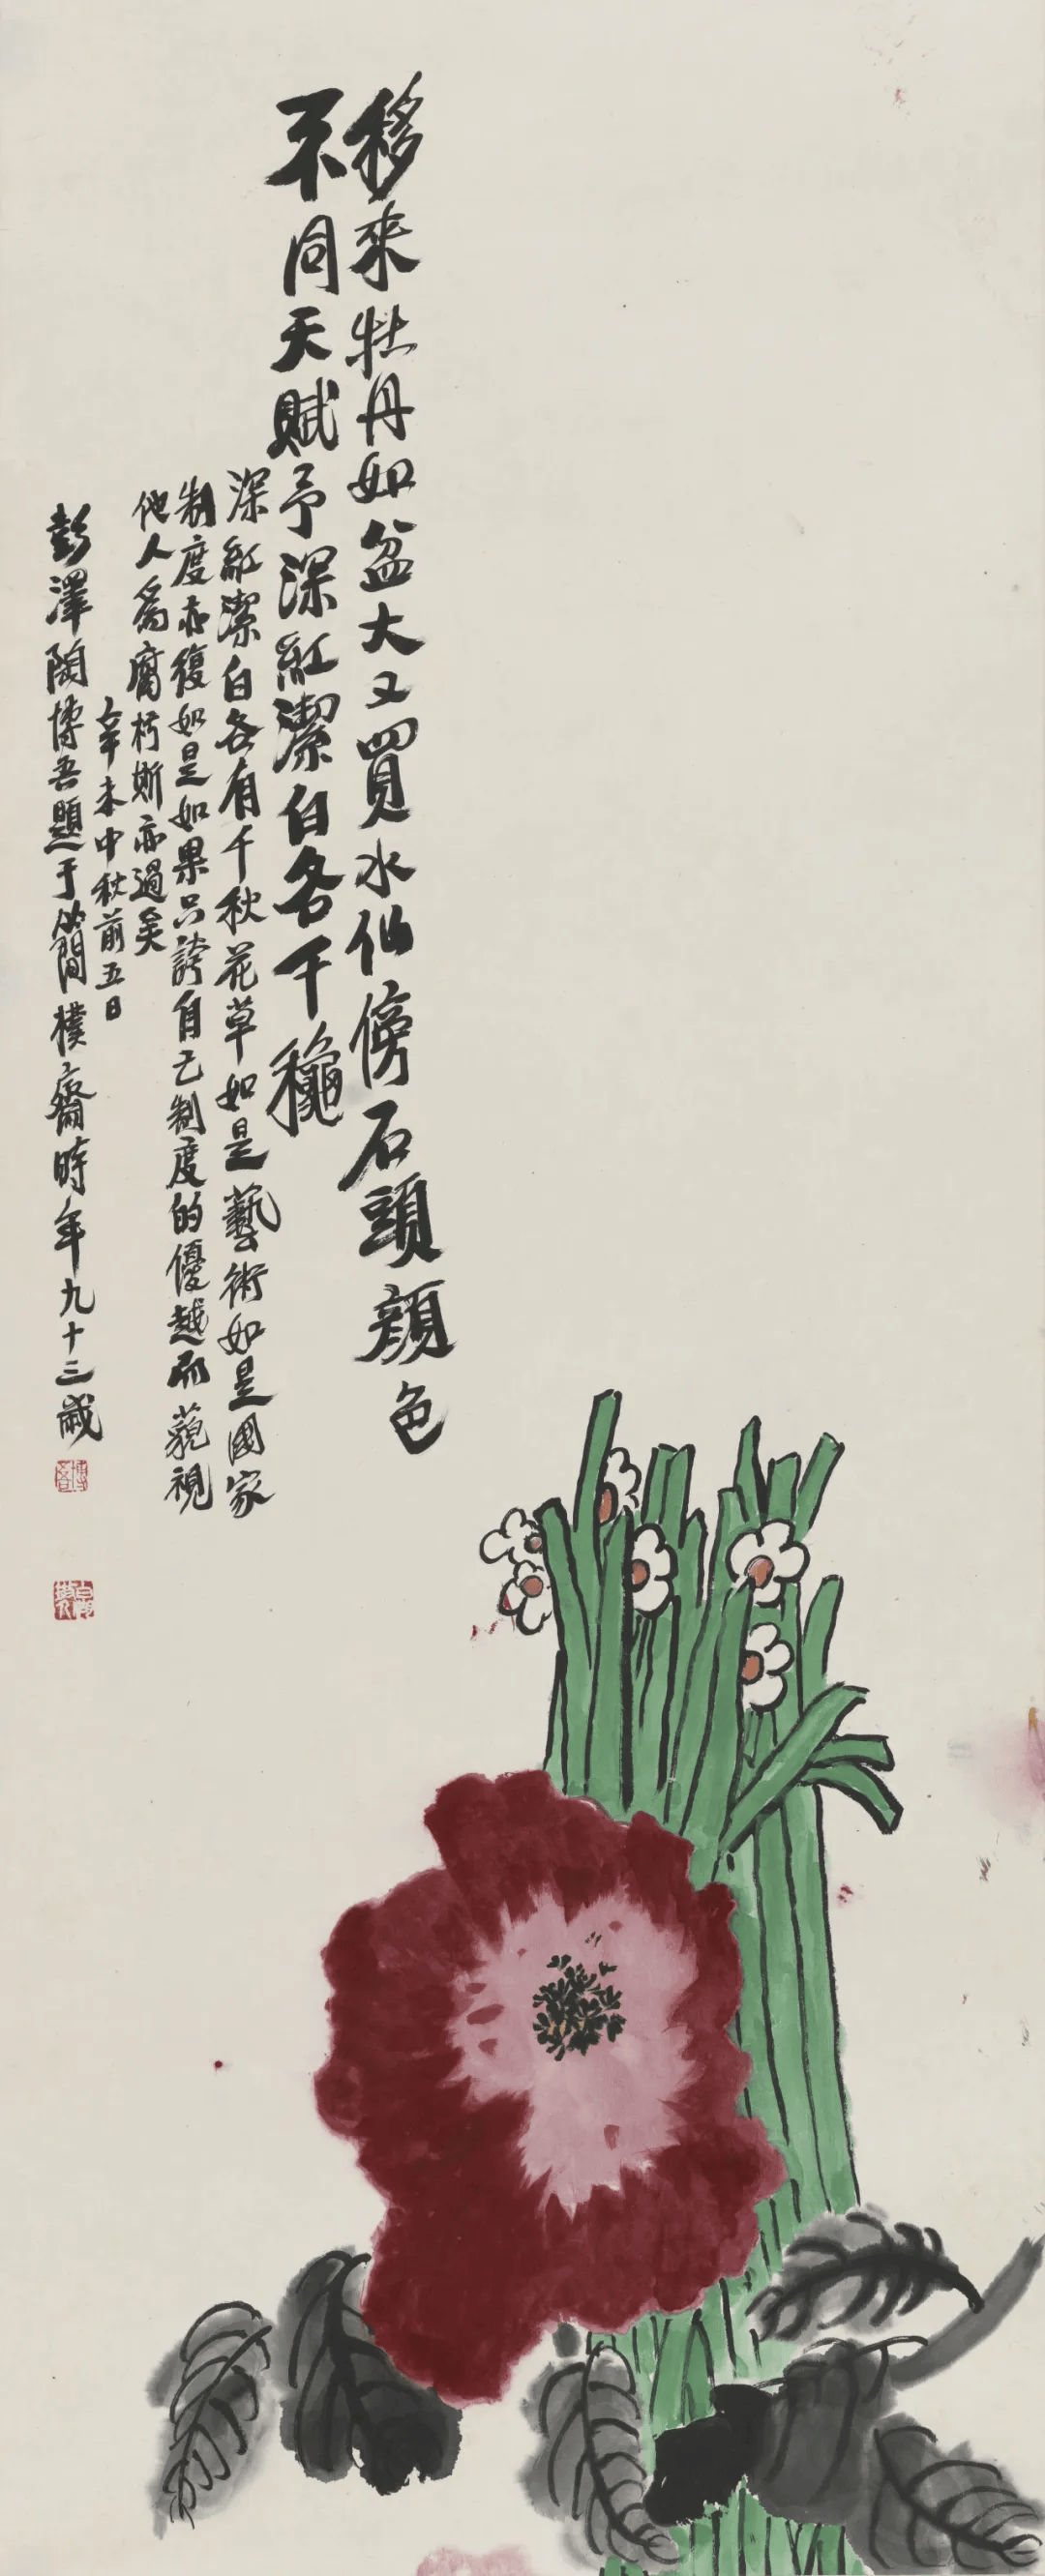 移來牡丹如盆大又買水仙傍石頭顏色
不同天賦予深紅潔白各千穐
深紅潔白各有千秋花草如是藝術如是國家
制度亦復如是如果只誇自己制度的優越而藐視
他人為腐朽斯亦過矣
辛未中秋前五日
彭澤陶博吾題于簡樸齋時年九十三歲
博吾